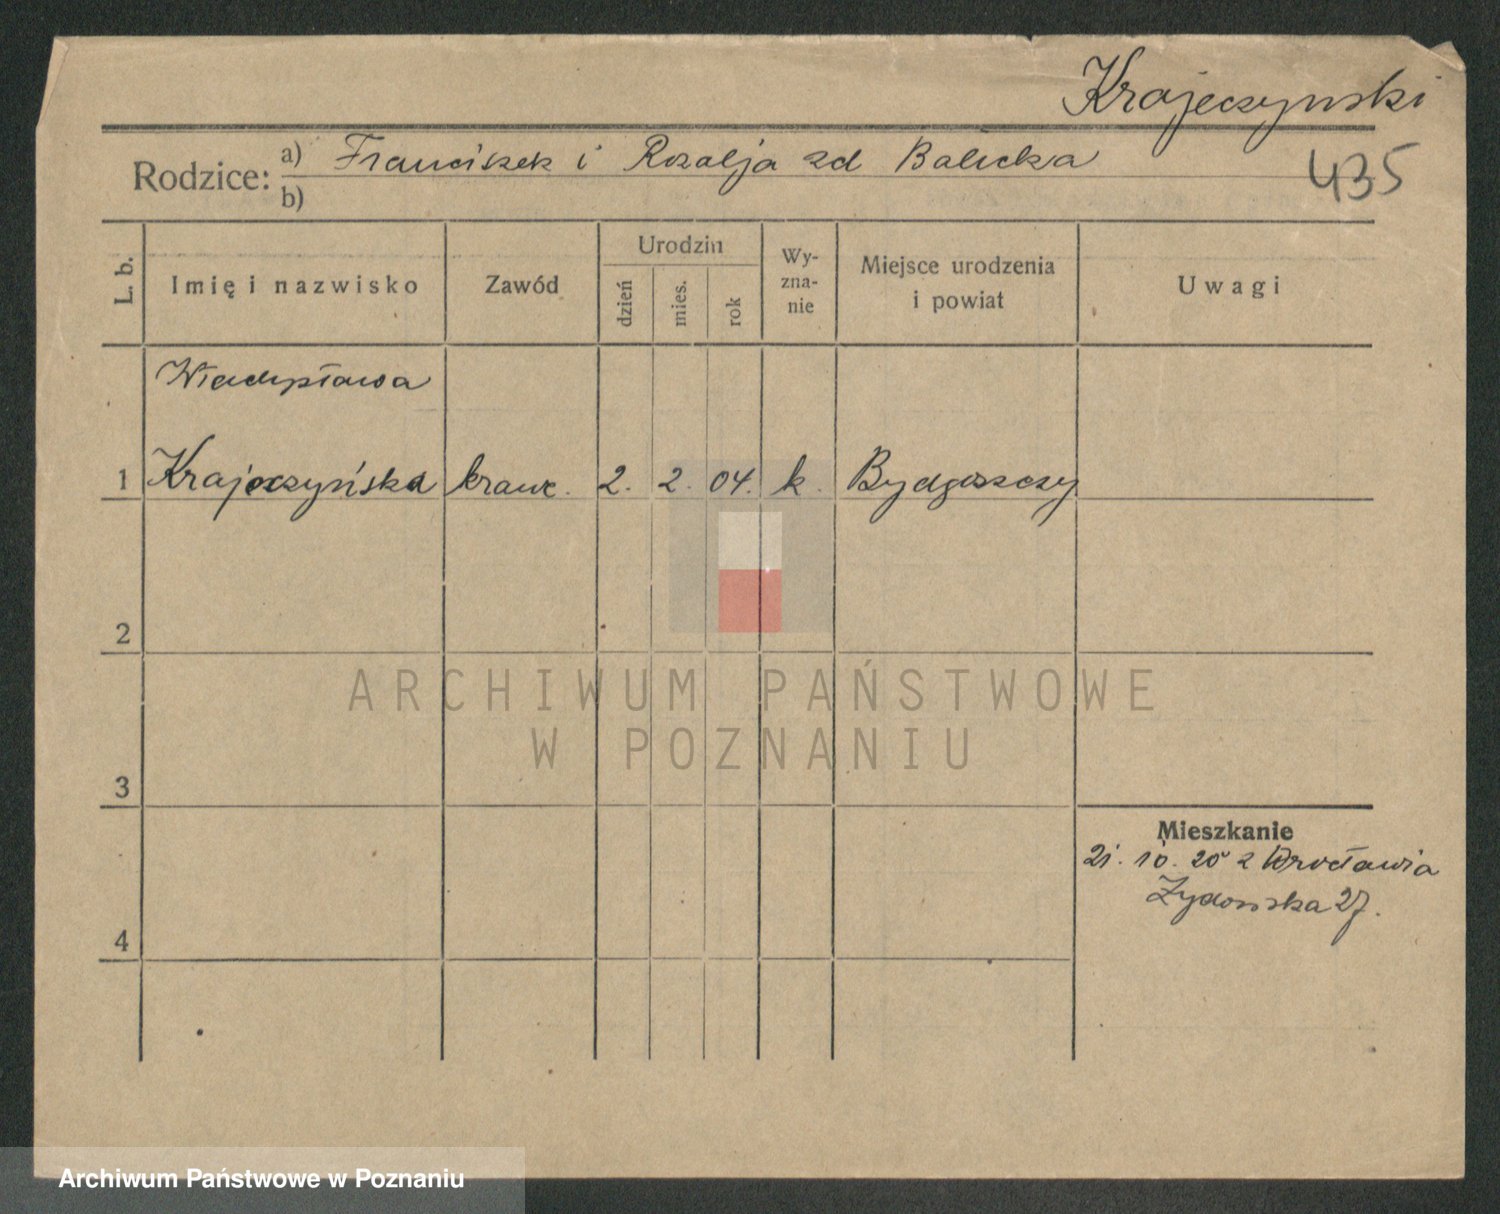 Krajeczynski
Rodzice: a) Franciszek i Rozalja zd Balicka
b)
435
L. b.
Imię i nazwisko
Zawód
Urodzin
dzień
mies.
rok
Wy-
zna-
nie
Miejsce urodzenia
i powiat
Uwagi
Władysława
1 Krajeczyńska krawc. 2. 2. 04. k. Bydgoszczy
2
ARCHIWUM PAŃSTWOWE
W POZNANIU
3
Mieszkanie
21. 10. 20 z Wrocławia
Żydowska 27.
4
Archiwum Państwowe w Poznaniu